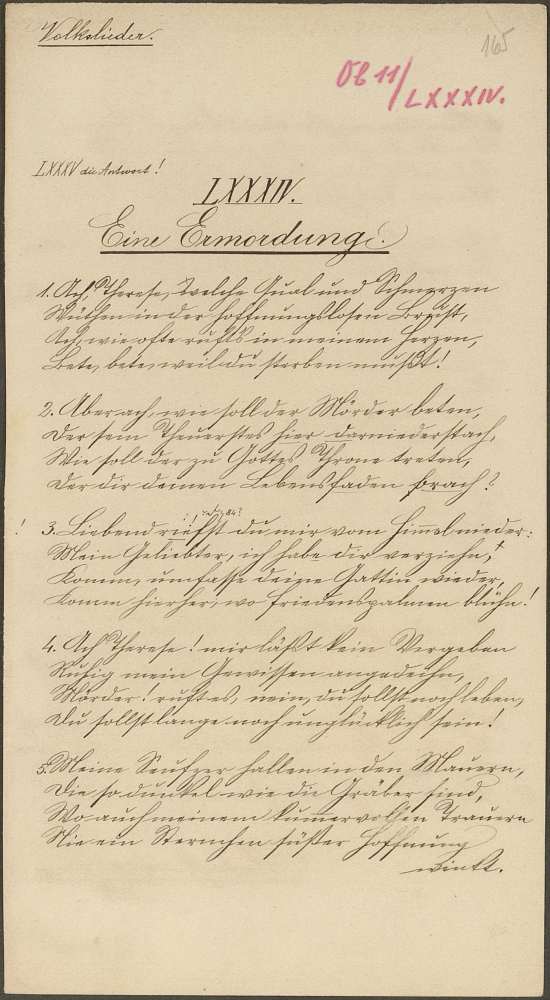 Volkslieder.
165
Ob 11/
LXXXIV.
LXXXV die Antwort!
LXXXIV.
Eine Ermordung.
1. Ach, Therese, welche Qual und Schmerzen
Wüthen in der hoffnungslosen Brust,
Ach, wie ofte rufts in meinem Herzen,
Bete, bete, weil du sterben mußt!
2. Aber ach, wie soll der Mörder beten,
Der sein Theuerstes hier darniederstach,
Wie soll der zu Gottes Throne treten,
Der dir deinen Lebensfaden brach?
! 3. Liebend riefst du mir vom Himmel nieder:
Mein Geliebter, ich habe dir verziehn,
Komm, umfasse deine Gattin wieder,
Komm hierher, wo Friedenspalmen blühn!
4. Ach Therese! mir läßt kein Vergeben
Ruhig mein Gewissen angedeihn,
Mörder! ruft es, nein, du sollst noch leben,
Du sollst lange noch unglücklich sein!
5. Meine Seufzer hallen in den Mauern,
Die so dunkel wie die Gräber sind,
Wo auch meinem kummervollen Trauern
Nie ein Sternchen süßer Hoffnung
winkt.